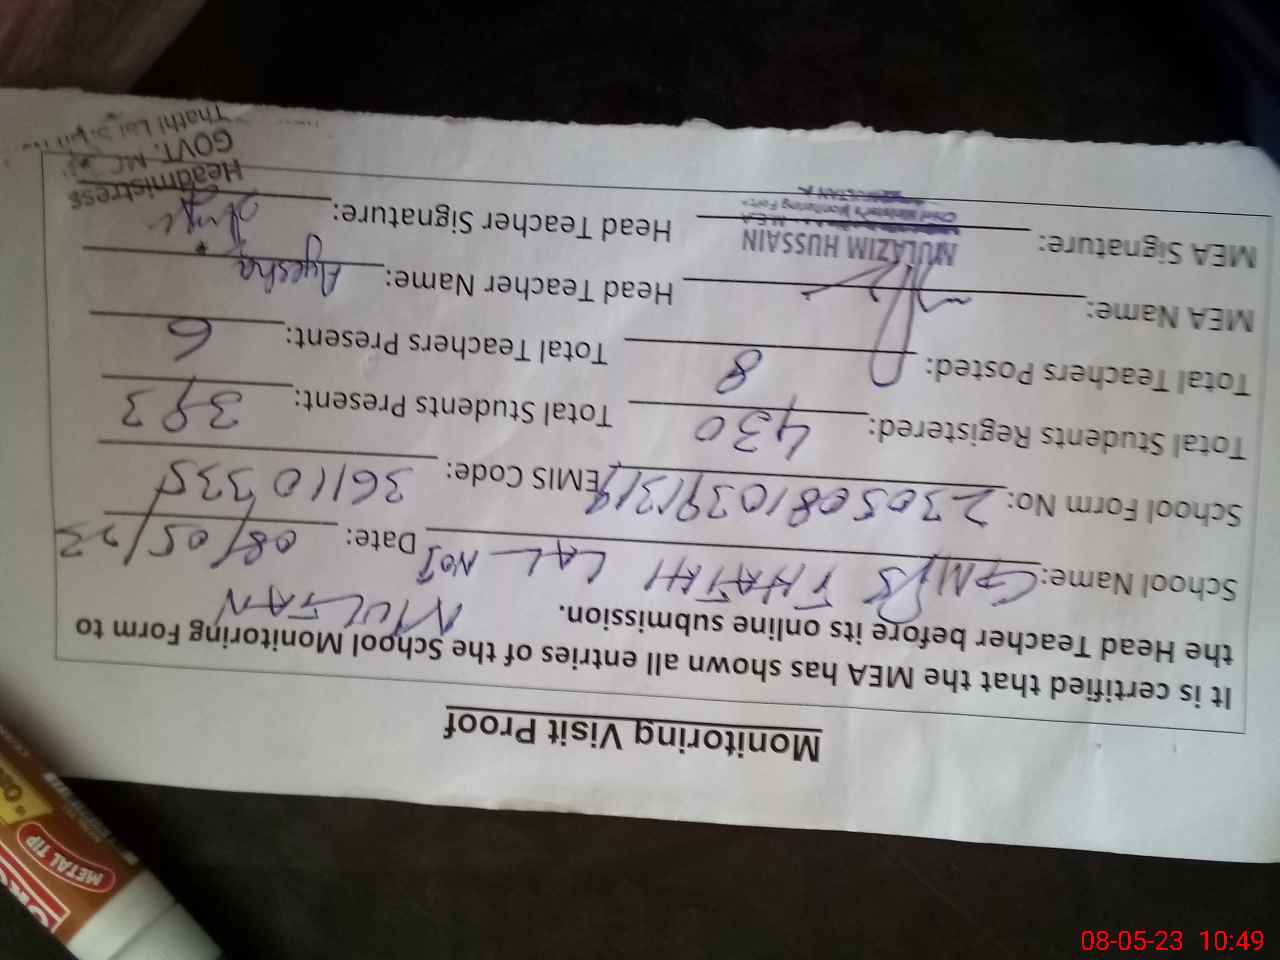 Monitoring Visit Proof
It is certified that the MEA has shown all entries of the School Monitoring Form to
the Head Teacher before its online submission. MULTAN
School Name: GMPS THATHI LAL NO1 Date: 08/05/23
School Form No: EMIS Code: 36110335
Total Students Registered: 430 Total Students Present: 393
Total Teachers Posted: 8 Total Teachers Present: 6
MEA Name: Head Teacher Name: Ayesha
MULAZIM HUSSAIN
MEA Signature: Head Teacher Signature:
Headmistress
GOVT. MC
Thathi Lal
METAL TIP
08-05-23 10:49